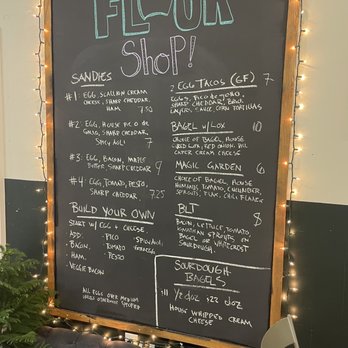 FLOUR
SHOP!
SANDIES
#1: EGG, SCALLION CREAM
CHEESE, SHARP CHEDDAR,
HAM 7.50
#2: EGG, HOUSE PICO DE
GALLO, SHARP CHEDDAR,
SPICY AIOLI 7
#3: EGG, BACON, MAPLE
BUTTER, SHARP CHEDDAR 9
#4: EGG, TOMATO, PESTO,
SHARP CHEDDAR 7.25
BUILD YOUR OWN
START W/ EGG & CHEESE
ADD: - PICO - SPICY AIOLI
- BACON - TOMATO
- HAM - PESTO
- VEGGIE BACON
ALL EGGS OVER MEDIUM
UNLESS OTHERWISE
2 EGG TACOS (GF) 7
EGGS, PICO DE GALLO,
SHARP CHEDDAR, BASIL
SAUCE, CORN TORTILLAS
BAGEL W/ LOX 10
CHOICE OF BAGEL, HOUSE
CURED LOX, RED ONION, DILL
CAPER CREAM CHEESE
MAGIC GARDEN 6
CHOICE OF BAGEL, HOUSE
HUMMUS, TOMATO, CUCUMBER,
SPROUTS, CHILI FLAKES
BLT 8
BACON, LETTUCE, TOMATO
SPROUTS ON
BAGEL OR
SOURDOUGH
SOURDOUGH
BAGELS
$22 doz
HOUSE WHIPPED CREAM
CHEESE